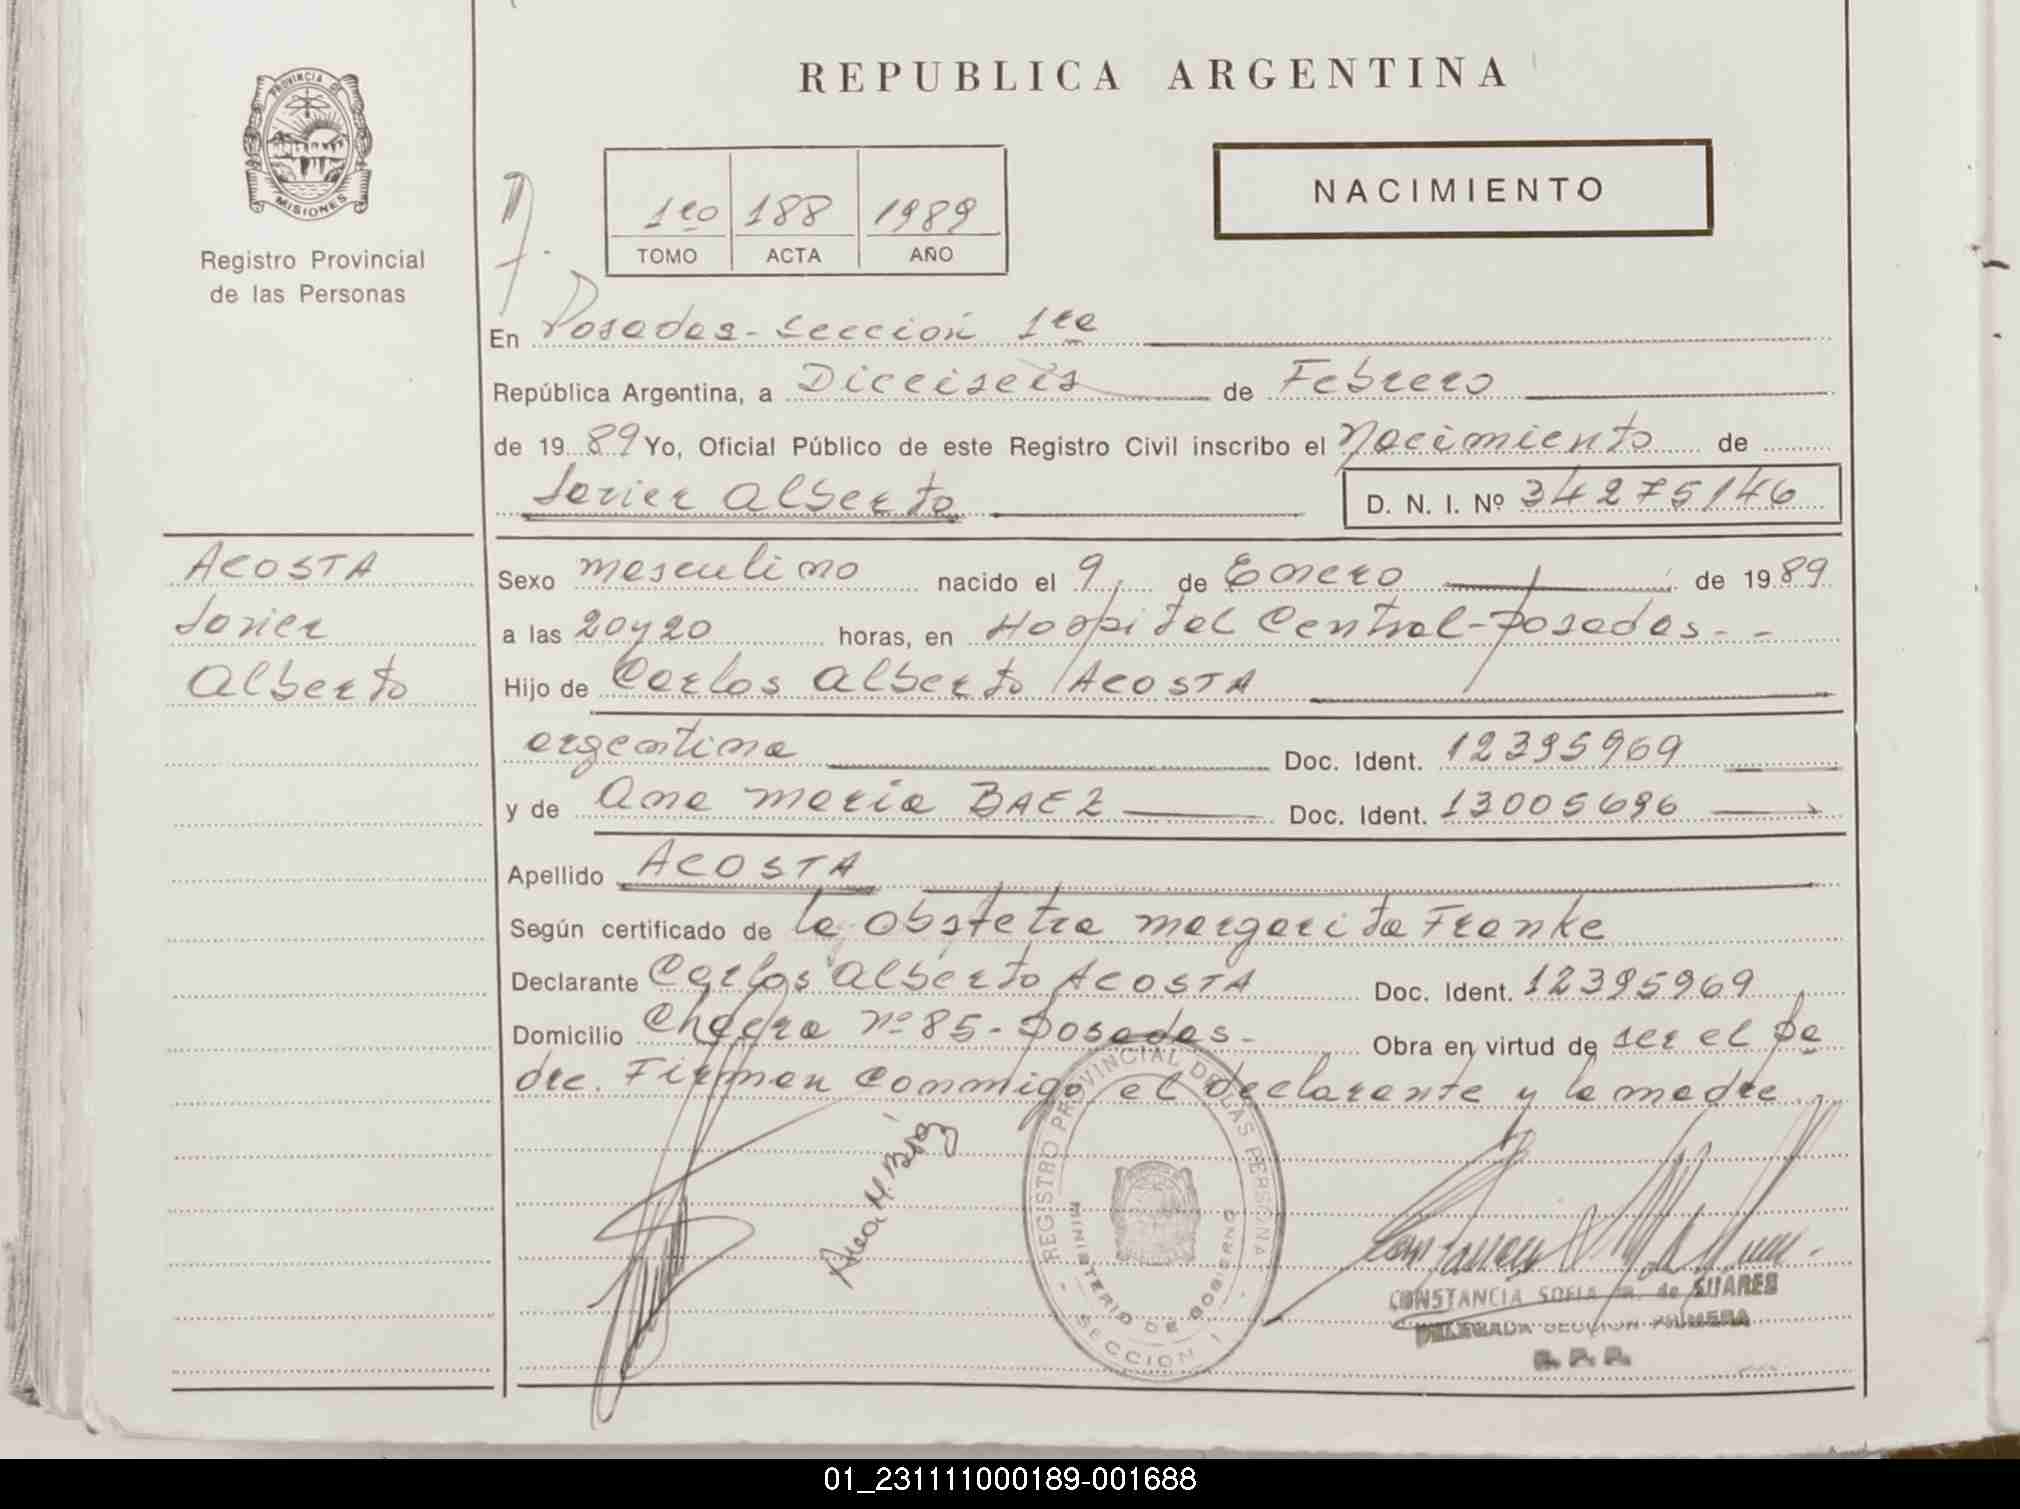 PROVINCIA DE
MISIONES
Registro Provincial
de las Personas
REPUBLICA ARGENTINA
1ro 188 1989
TOMO ACTA AÑO
NACIMIENTO
En Posadas - Sección 1ra
República Argentina, a Dieciseis de Febrero
de 19 89 Yo, Oficial Público de este Registro Civil inscribo el Nacimiento de
Javier Alberto D. N. I. Nº 34275146
ACOSTA
Javier
Alberto
Sexo masculino nacido el 9 de Enero de 19 89
a las 20 y 20 horas, en Hospital Central - Posadas - -
Hijo de Carlos Alberto ACOSTA
argentina Doc. Ident. 12395969
y de Ana Maria BAEZ Doc. Ident. 13005696
Apellido ACOSTA
Según certificado de la Obstetra Margarita Franke
Declarante Carlos Alberto ACOSTA Doc. Ident. 12395969
Domicilio Chacra nº 85 - Posadas - Obra en virtud de ser el pa
dre. Firman conmigo el declarante y la madre.
Ana M. Báez
REGISTRO PROVINCIAL DE LAS PERSONAS
MINISTERIO DE GOBIERNO
- SECCION 1 -
CONSTANCIA SOFIA M. de SUARES
DELEGADA SECCION PRIMERA
R. P. P.
01_231111000189-001688